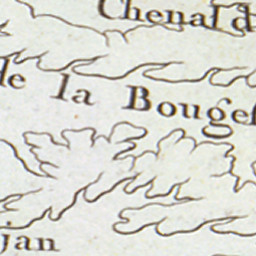 Chenal d
de la Bouge
jan